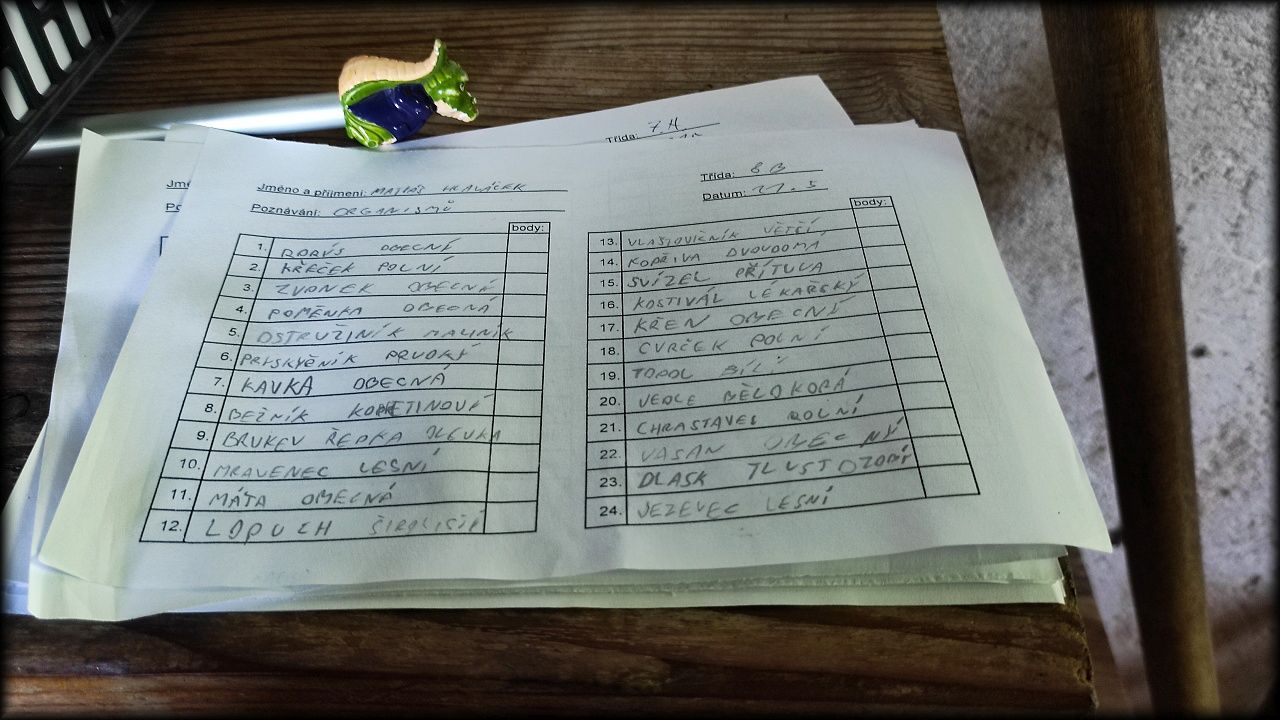 Třída: 7.A
Jmé
Po
Jméno a příjmení: MATYÁŠ HLAVÁČEK
Třída: 8B
Poznávání: ORGANISMŮ
Datum: 11. 5
body:
1. RORÝS OBECNÝ
2. KŘEČEK POLNÍ
3. ZVONEK OBECNÁ
4. POMĚNKA OBECNÁ
5. OSTRUŽINÍK MALINÍK
6. PRYSKYĚNÍK PRUDKÝ
7. KAVKA OBECNÁ
8. BEŽNÍK KOPRETINOVÝ
9. BRUKEV ŘEPKA OLEVKA
10. MRAVENEC LESNÍ
11. MÁTA OBECNÁ
12. LOPUCH ŠIROLISTÝ
body:
13. VLAŠTOVIČNÍK VĚTŠÍ
14. KOPŘIVA DVOUDOMÁ
15. SVÍZEL PŘÍTULA
16. KOSTIVÁL LÉKAŘSKÝ
17. KŘEN OBECNÝ
18. CVRČEK POLNÍ
19. TOPOL BÍLÝ
20. VEDLE BĚLOKORÁ
21. CHRASTAVEC ROLNÍ
22. VASAN OBECNÝ
23. DLASK TLUSTOZOBÝ
24. JEZEVEC LESNÍ